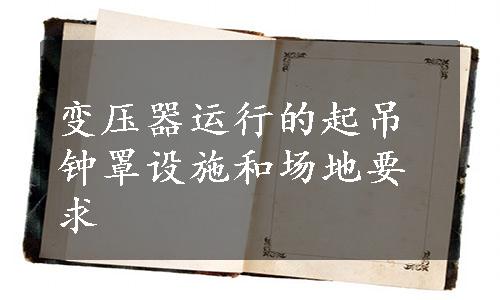 变压器运行的起吊
钟罩设施和场地要
求